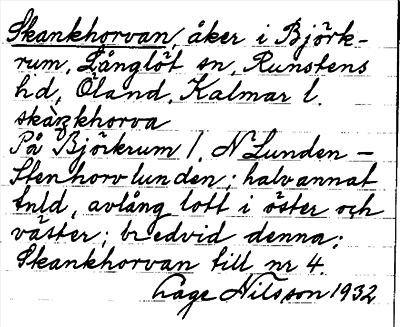 Skankhorvan, åker i Björk-
rum, Långlöt sn, Runstens
hd, Öland, Kalmar l.
skàŋkhorva
På Björkrum 1, N Lunden -
Stenhorvlunden; halvannat
tnld, avlång lott i öster och
väster; bredvid denna:
Skankhorvan till nr 4.
Åge Nilsson 1932